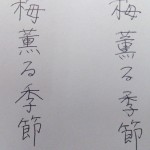 梅薫る季節
梅薫る季節